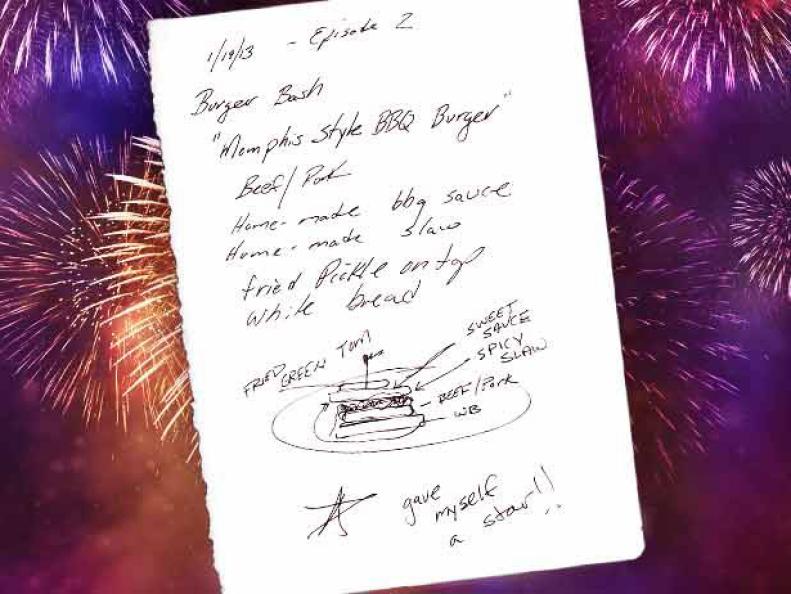 1/19/13 - Episode 2
Burger Bash
"Memphis Style BBQ Burger"
Beef/Pork
Home-made bbq sauce
Home-made slaw
fried Pickle on top
white bread
FRIED GREEN TOM
SWEET SAUCE
SPICY SLAW
BEEF/PORK
WB
gave
myself
a star!!